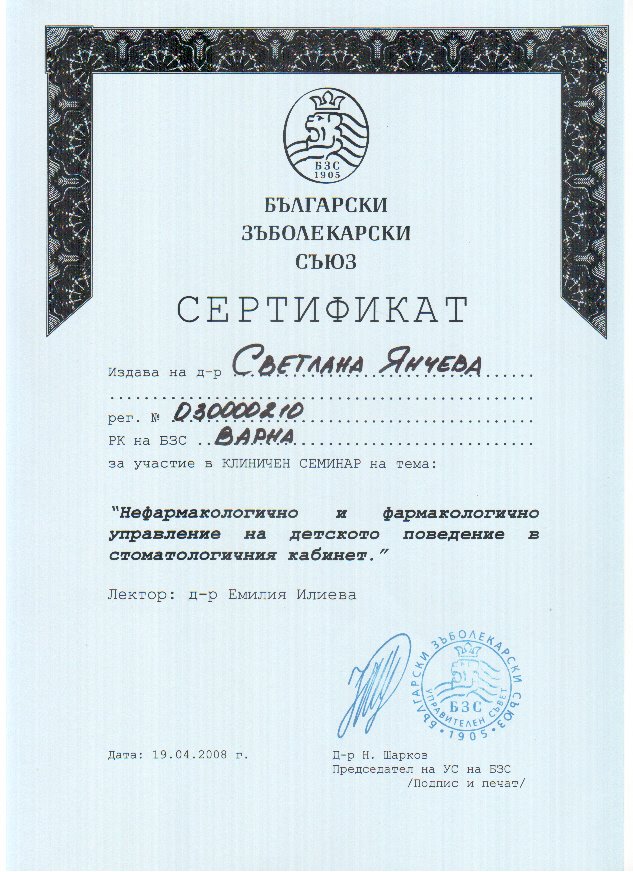 БЗС
1905
БЪЛГАРСКИ
ЗЪБОЛЕКАРСКИ
СЪЮЗ
СЕРТИФИКАТ
Издава на д-р СВЕТЛАНА ЯНЧЕВА
рег. № 030000210
РК на БЗС ВАРНА
за участие в КЛИНИЧЕН СЕМИНАР на тема:
“Нефармакологично и фармакологично
управление на детското поведение в
стоматологичния кабинет.”
Лектор: д-р Емилия Илиева
БЪЛГАРСКИ ЗЪБОЛЕКАРСКИ СЪЮЗ
УПРАВИТЕЛЕН СЪВЕТ
БЗС
1905
Дата: 19.04.2008 г.
Д-р Н. Шарков
Председател на УС на БЗС
/Подпис и печат/